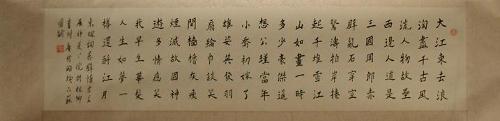 大江東去浪
淘盡千古風
流人物故壘
西邊人道是
三國周郎赤
壁亂石穿空
驚濤拍岸捲
起千堆雪江
山如畫一時
多少豪傑遙
想公瑾當年
小喬初嫁了
雄姿英發羽
扇綸巾談笑
間檣櫓灰飛
煙滅故國神
遊多情應笑
我早生華髮
人生如夢一
樽還酹江月
東坡詞赤壁懷古